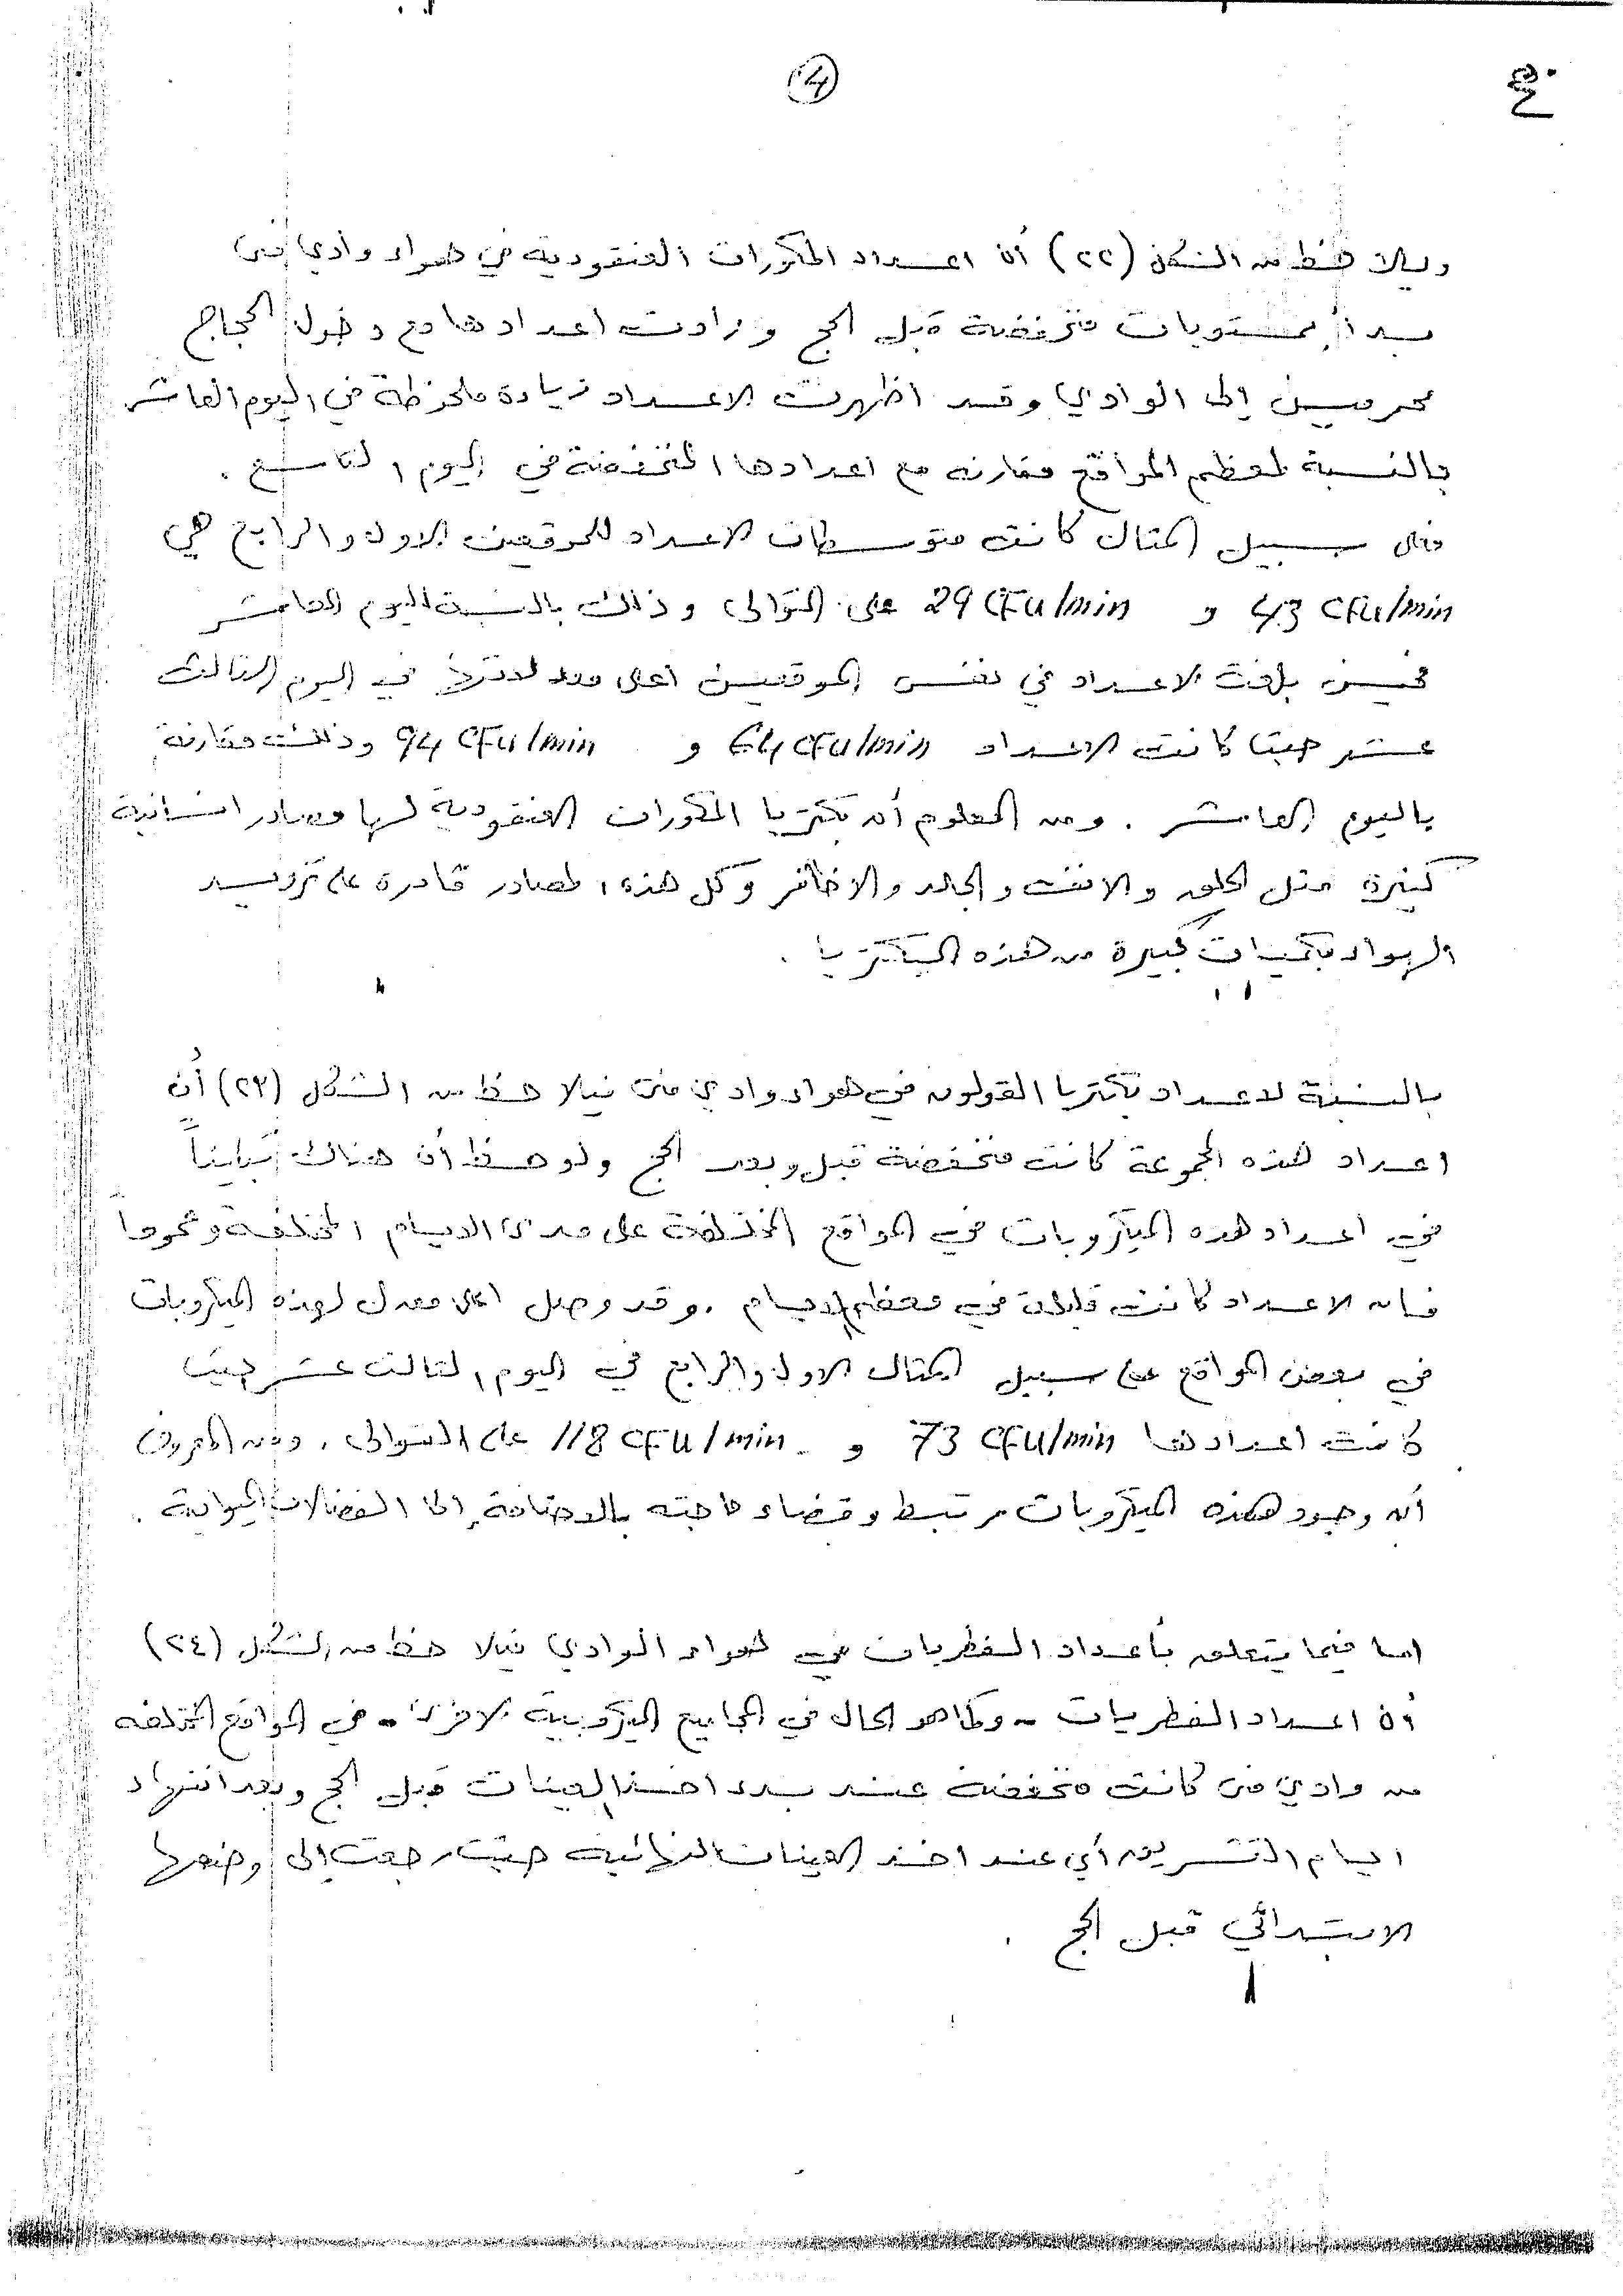 (4)
ويلاحظ من الشكل (٢٢) أن اعداد المكورات العنقودية في هواء وادي منى
بدأ بمستويات منخفضة قبل الحج وزادت اعدادها مع دخول الحجاج
محرمين إلى الوادي وقد اظهرت الاعداد زيادة ملحوظة في اليوم العاشر
بالنسبة لمعظم المواقع مقارنه مع اعدادها المنخفضة في اليوم التاسع .
فعلى سبيل المثال كانت متوسطات الاعداد للموقعين الاول والرابع هي
43 CFU/min و 29 CFU/min على التوالى وذلك بالنسبة لليوم العاشر
فحين بلغت الاعداد في نفس الموقعين اعلى معدلاتها في اليوم الثالث
عشر حيث كانت الاعداد 64 CFU/min و 94 CFU/min وذلك مقارنة
باليوم العاشر . ومن المعلوم أن بكتريا المكورات العنقودية لها مصادر انسانية
كثيرة مثل الحلق والانف والجلد والاظافر وكل هذه المصادر قادرة على تزويد
الهواء بكميات كبيرة من هذه البكتريا .
بالنسبة لاعداد بكتريا القولون في هواء وادي منى فيلاحظ من الشكل (٢٣) أن
اعداد هذه المجموعة كانت منخفضة قبل وبعد الحج ولوحظ أن هناك تبايناً
في اعداد هذه الميكروبات في المواقع المختلفة على مدى الايام المختلفة وعموما
فان الاعداد كانت قليلة في معظم الايام . وقد وصل اعلى معدل لهذه الميكروبات
في بعض المواقع على سبيل المثال الاول والرابع في اليوم الثالث عشر حيث
كانت اعدادها 73 CFU/min و 118 CFU/min على التوالى . ومن المعروف
أن وجود هذه الميكروبات مرتبط وقضاء حاجته بالاضافة إلى الفضلات الحيوانية .
اما فيما يتعلق بأعداد الفطريات في هواء الوادي فيلاحظ من الشكل (٢٤)
أن اعداد الفطريات - وكما هو الحال في المجاميع الميكروبية الاخرى - في المواقع المختلفه
من وادي منى كانت منخفضة عند بدء اخذ العينات قبل الحج وبعد انتهاء
ايام التشريق أي عند اخذ العينات النهائية حيث رجعت إلى وضعها
الابتدائي قبل الحج .